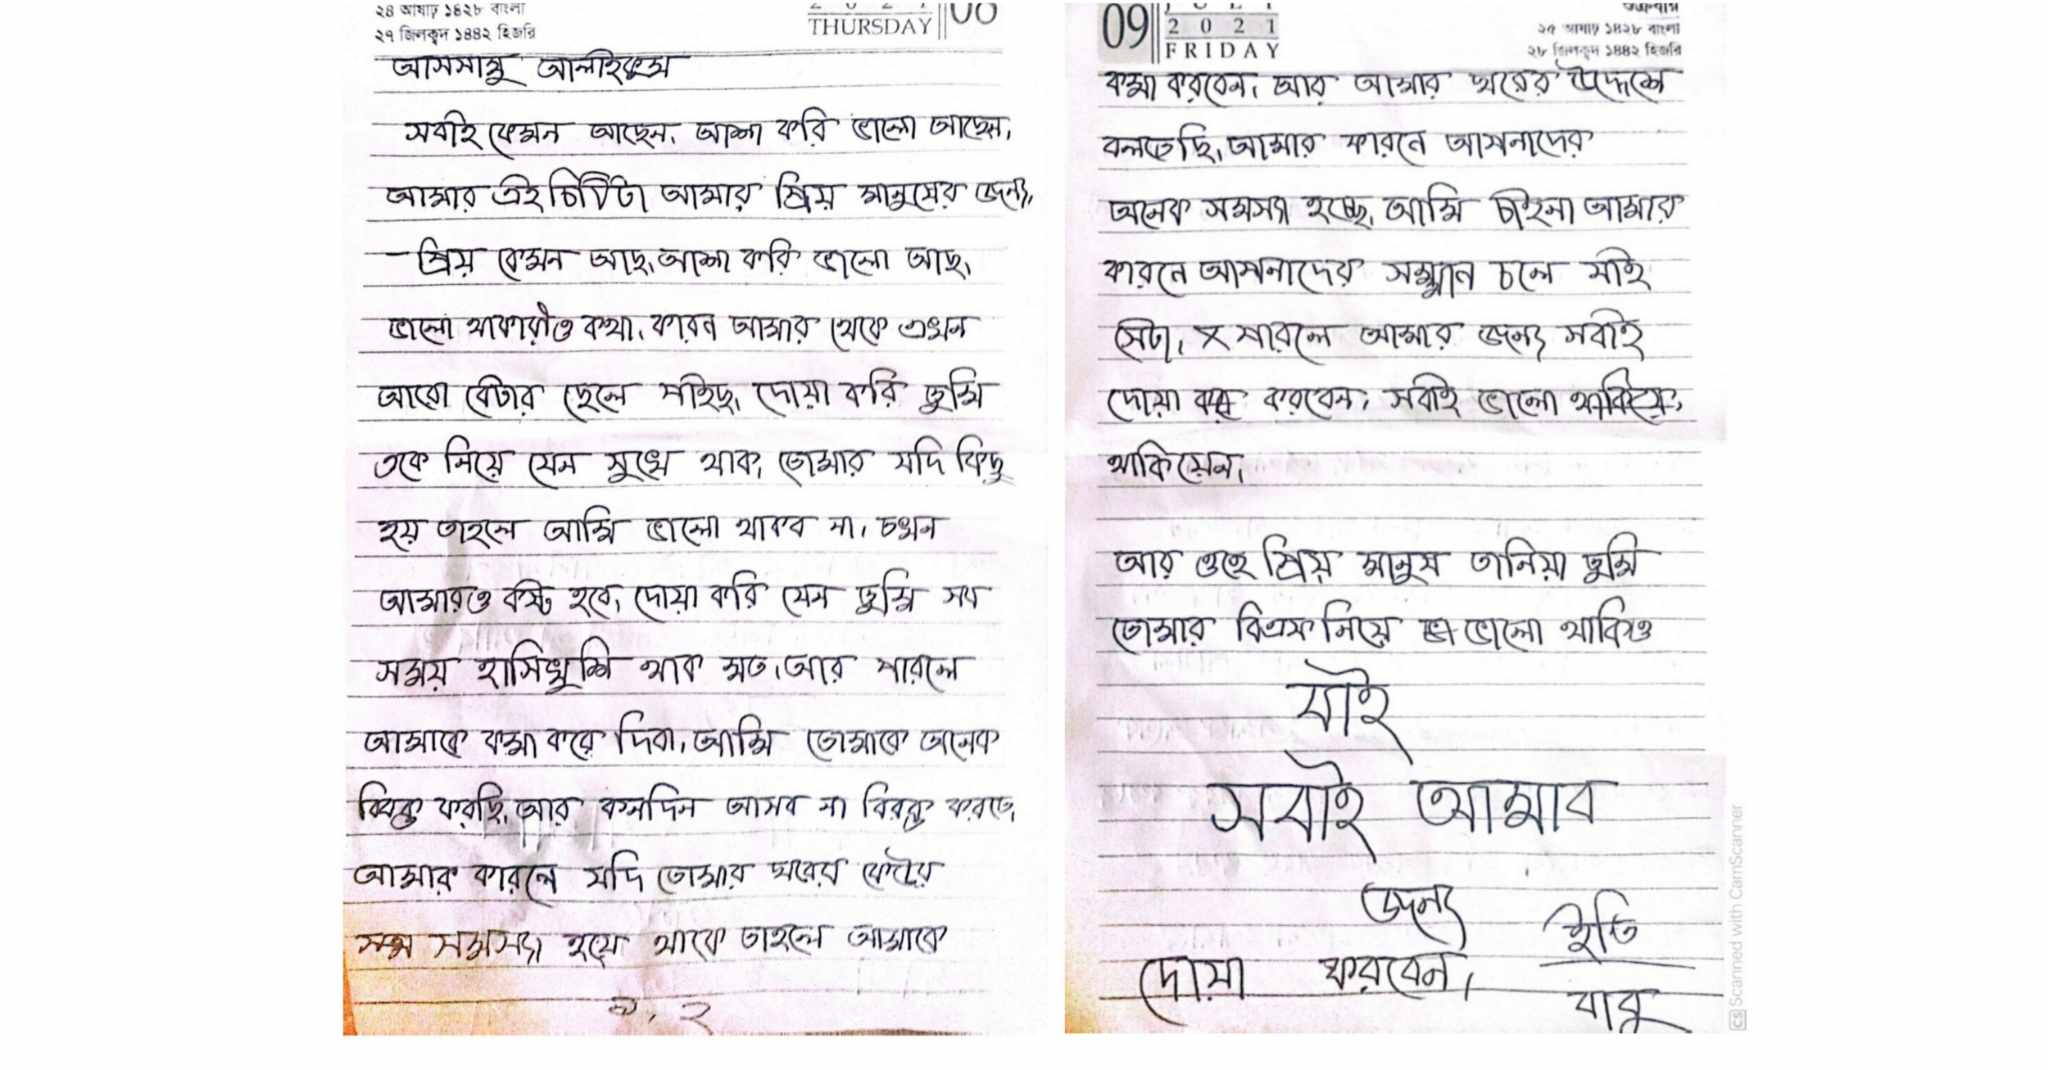 ২৪ আষাঢ় ১৪২৮ বাংলা
২৭ জিলকদ ১৪৪২ হিজরি
2021
THURSDAY 08
আসসালু আলাইকুম
সবাই কেমন আছেন, আশা করি ভালো আছেন,
আমার এই চিঠিটা আমার প্রিয় মানুষের জন্য,
- প্রিয় কেমন আছ, আশা করি ভালো আছ,
ভালো থাকারীও কথা, কারন আমার থেকে এখন
আরো বেটার ছেলে পাইছ, দোয়া করি তুমি
ওকে নিয়ে যেন সুখে থাক, তোমার যদি কিছু
হয় তাহলে আমি ভালো থাকব না, তখন
আমারও কষ্ট হবে, দোয়া করি যেন তুমি সব
সময় হাসিখুশি থাক মত, আর পারলে
আমাকে কমা করে দিবা, আমি তোমাকে অনেক
বিরক্ত করছি, আর কনদিন আসব না বিরক্ত করতে,
আমার কারনে যদি তোমার ঘরের
সমসস্যা হয়ে থাকে তাহলে আমাকে
09 JULY
2021
FRIDAY
শুক্রবার
২৫ আষাঢ় ১৪২৮ বাংলা
২৮ জিলকদ ১৪৪২ হিজরি
কমা করবেন, আর আমার ঘরের উদ্দেশে
বলতেছি, আমার কারনে আপনাদের
অনেক সমসস্যা হচ্ছে, আমি চাইনা আমার
কারনে আপনাদের সম্মান চলে যাই
সেটা, পারলে আমার জন্য সবাই
দোয়া করবেন, সবাই ভালো
থাকিয়েন,
আর ওহে প্রিয় মানুষ তানিয়া তুমি
তোমার বিএফ নিয়ে ভালো থাকিও
যাই
সবাই আমাব
জন্য
দোয়া করবেন,
ইতি
বাবু
CS Scanned with CamScanner